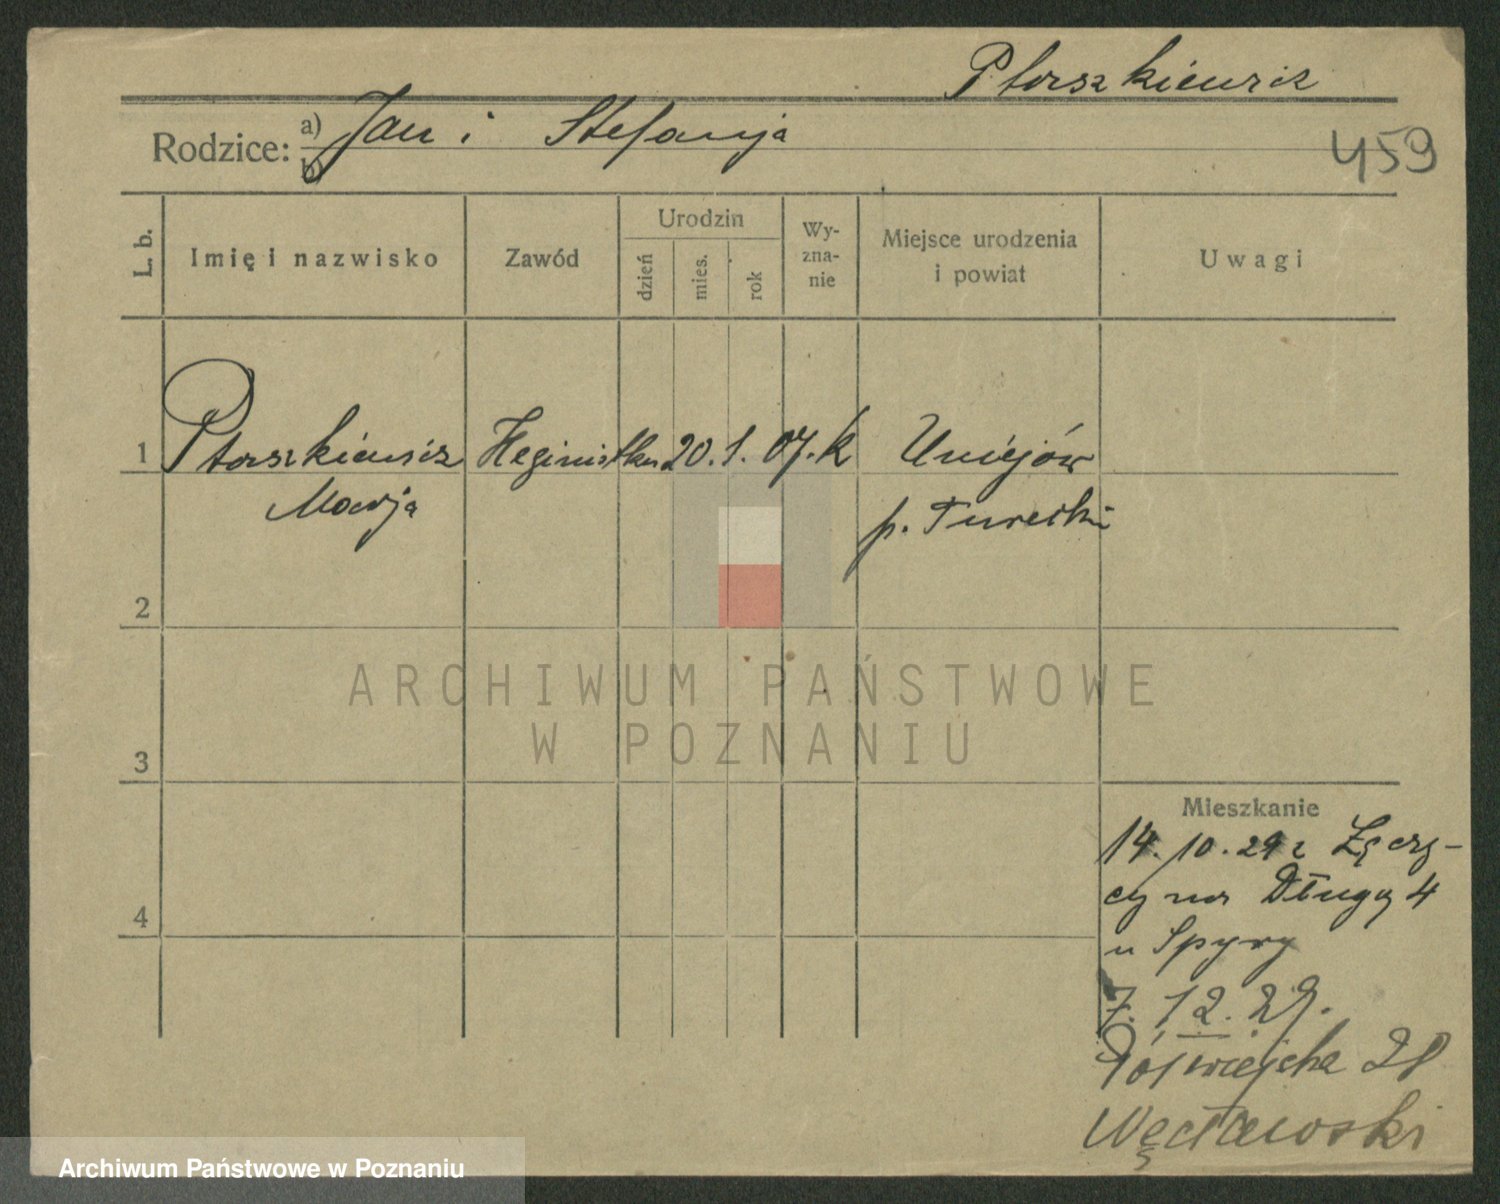 Ptaszkiewicz
Rodzice: a) Jan i Stefanja
b)
459
L. b.
Imię i nazwisko
Zawód
Urodzin
dzień
mies.
rok
Wy-
zna-
nie
Miejsce urodzenia
i powiat
Uwagi
1 Ptaszkiewicz Heginistka 20. 1. 07. k Uniejów
Marja p. Turecki
2
ARCHIWUM PAŃSTWOWE
W POZNANIU
3
Mieszkanie
14. 10. 29 z Łęczy-
cy na Długą 4
u Spyry
4
7. 12. 29.
Półwiejska 28
Węcławski
Archiwum Państwowe w Poznaniu